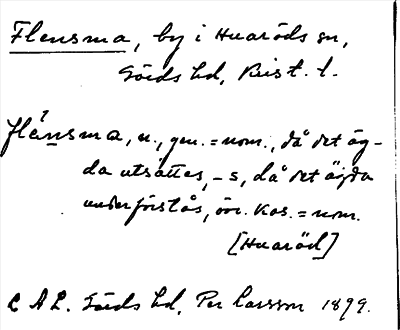 Flensma, by i Huaröds sn,
Gärds hd, Krist. l.
flénsma, n., gen. = nom., då det äg-
da utsättes, -s, då det ägda
underförstås, övr. kas. = nom.
[Huaröd]
C A L. Gärds hd, Per Larsson 1899.